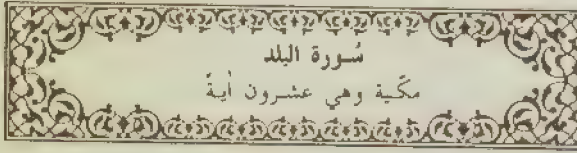 سُورة البلد
مكّية وهي عشرون أيةً